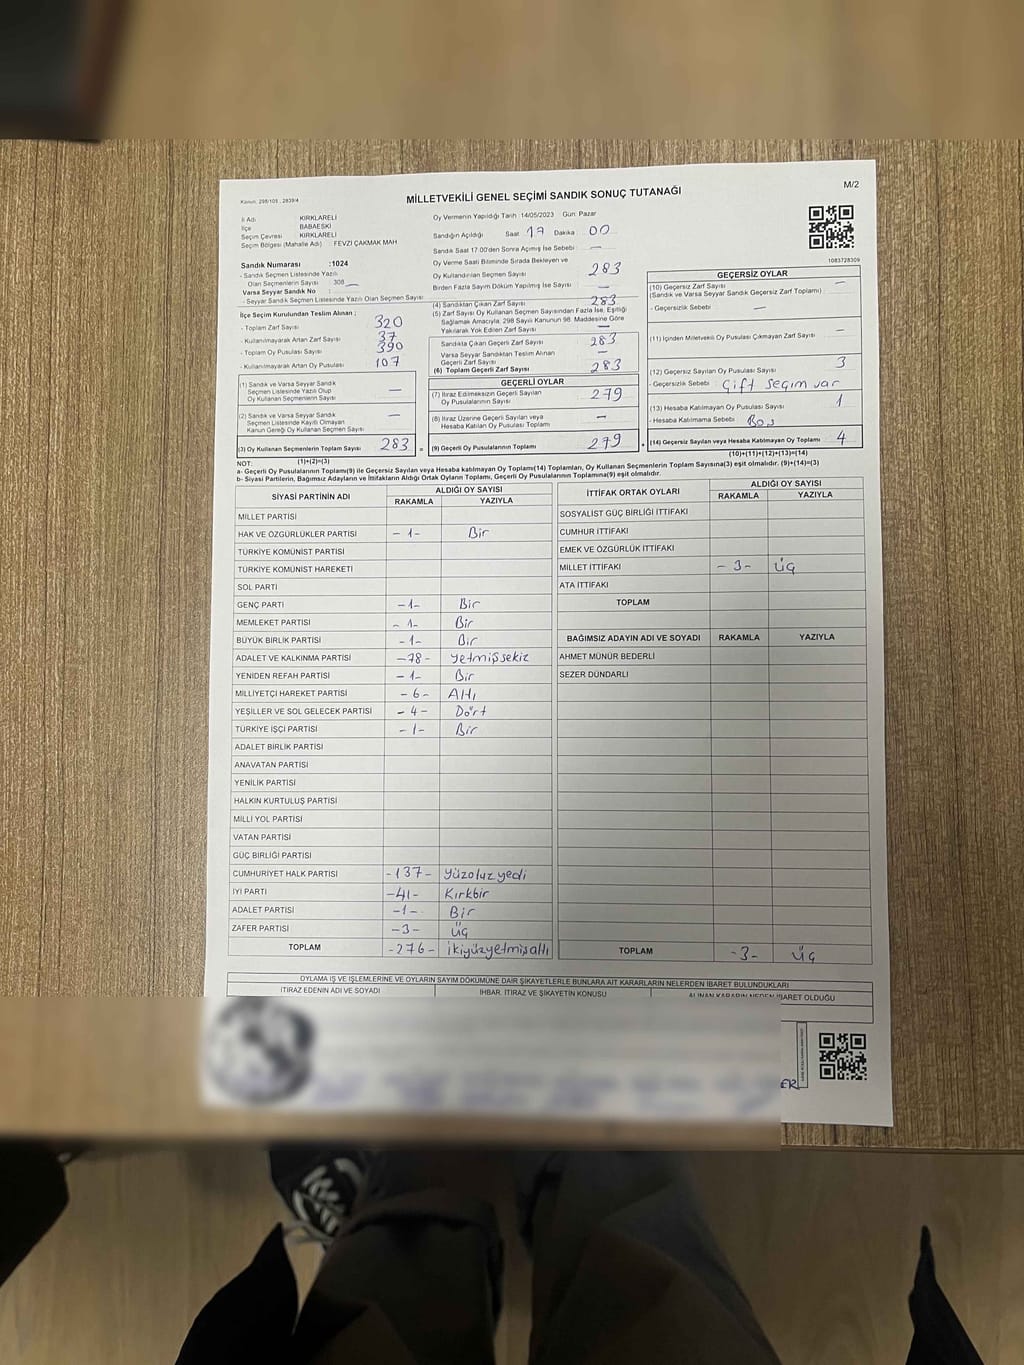 Kanun: 298/105 , 2839/4
MİLLETVEKİLİ GENEL SEÇİMİ SANDIK SONUÇ TUTANAĞI
M/2
İl Adı KIRKLARELİ
İlçe BABAESKİ
Seçim Çevresi KIRKLARELİ
Seçim Bölgesi (Mahalle Adı) FEVZİ ÇAKMAK MAH
Sandık Numarası :1024
- Sandık Seçmen Listesinde Yazılı
Olan Seçmenlerin Sayısı 308
Varsa Seyyar Sandık No :
- Seyyar Sandık Seçmen Listesinde Yazılı Olan Seçmen Sayısı
İlçe Seçim Kurulundan Teslim Alınan ;
- Toplam Zarf Sayısı 320
- Kullanılmayarak Artan Zarf Sayısı 37
- Toplam Oy Pusulası Sayısı 390
- Kullanılmayarak Artan Oy Pusulası 107
(1) Sandık ve Varsa Seyyar Sandık
Seçmen Listesinde Yazılı Olup
Oy Kullanan Seçmenlerin Sayısı —
(2) Sandık ve Varsa Seyyar Sandık
Seçmen Listesinde Kayıtlı Olmayan
Kanun Gereği Oy Kullanan Seçmen Sayısı —
(3) Oy Kullanan Seçmenlerin Toplam Sayısı 283 =
(1)+(2)=(3)
Oy Vermenin Yapıldığı Tarih :14/05/2023 Gün: Pazar
Sandığın Açıldığı Saat 17 Dakika 00
Sandık Saat 17:00'den Sonra Açılmış İse Sebebi —
Oy Verme Saati Bitiminde Sırada Bekleyen ve
Oy Kullandırılan Seçmen Sayısı 283
Birden Fazla Sayım Döküm Yapılmış İse Sayısı —
(4) Sandıktan Çıkan Zarf Sayısı 283
(5) Zarf Sayısı Oy Kullanan Seçmen Sayısından Fazla İse, Eşitliği
Sağlamak Amacıyla, 298 Sayılı Kanunun 98. Maddesine Göre
Yakılarak Yok Edilen Zarf Sayısı —
Sandıkta Çıkan Geçerli Zarf Sayısı 283
Varsa Seyyar Sandıktan Teslim Alınan
Geçerli Zarf Sayısı —
(6) Toplam Geçerli Zarf Sayısı 283
GEÇERLİ OYLAR
(7) İtiraz Edilmeksizin Geçerli Sayılan
Oy Pusulalarının Sayısı 279
(8) İtiraz Üzerine Geçerli Sayılan veya
Hesaba Katılan Oy Pusulası Toplamı —
(9) Geçerli Oy Pusulalarının Toplamı 279 +
1083728309
GEÇERSİZ OYLAR
(10) Geçersiz Zarf Sayısı —
(Sandık ve Varsa Seyyar Sandık Geçersiz Zarf Toplamı)
- Geçersizlik Sebebi —
(11) İçinden Milletvekili Oy Pusulası Çıkmayan Zarf Sayısı —
(12) Geçersiz Sayılan Oy Pusulası Sayısı 3
- Geçersizlik Sebebi Çift seçim var
(13) Hesaba Katılmayan Oy Pusulası Sayısı 1
- Hesaba Katılmama Sebebi Boş
(14) Geçersiz Sayılan veya Hesaba Katılmayan Oy Toplamı 4
(10)+(11)+(12)+(13)=(14)
NOT:
a- Geçerli Oy Pusulalarının Toplamı(9) ile Geçersiz Sayılan veya Hesaba katılmayan Oy Toplamı(14) Toplamları, Oy Kullanan Seçmenlerin Toplam Sayısına(3) eşit olmalıdır. (9)+(14)=(3)
b- Siyasi Partilerin, Bağımsız Adayların ve İttifakların Aldığı Ortak Oyların Toplamı, Geçerli Oy Pusulalarının Toplamına(9) eşit olmalıdır.
SİYASİ PARTİNİN ADI ALDIĞI OY SAYISI
RAKAMLA YAZIYLA
MİLLET PARTİSİ
HAK VE ÖZGÜRLÜKLER PARTİSİ -1- Bir
TÜRKİYE KOMÜNİST PARTİSİ
TÜRKİYE KOMÜNİST HAREKETİ
SOL PARTİ
GENÇ PARTİ -1- Bir
MEMLEKET PARTİSİ -1- Bir
BÜYÜK BİRLİK PARTİSİ -1- Bir
ADALET VE KALKINMA PARTİSİ -78- yetmişsekiz
YENİDEN REFAH PARTİSİ -1- Bir
MİLLİYETÇİ HAREKET PARTİSİ -6- Altı
YEŞİLLER VE SOL GELECEK PARTİSİ -4- Dört
TÜRKİYE İŞÇİ PARTİSİ -1- Bir
ADALET BİRLİK PARTİSİ
ANAVATAN PARTİSİ
YENİLİK PARTİSİ
HALKIN KURTULUŞ PARTİSİ
MİLLİ YOL PARTİSİ
VATAN PARTİSİ
GÜÇ BİRLİĞİ PARTİSİ
CUMHURİYET HALK PARTİSİ -137- yüzotuzyedi
İYİ PARTİ -41- Kırkbir
ADALET PARTİSİ -1- Bir
ZAFER PARTİSİ -3- Üç
TOPLAM -276- ikiyüzyetmişaltı
İTTİFAK ORTAK OYLARI ALDIĞI OY SAYISI
RAKAMLA YAZIYLA
SOSYALİST GÜÇ BİRLİĞİ İTTİFAKI
CUMHUR İTTİFAKI
EMEK VE ÖZGÜRLÜK İTTİFAKI
MİLLET İTTİFAKI -3- Üç
ATA İTTİFAKI
TOPLAM
BAĞIMSIZ ADAYIN ADI VE SOYADI RAKAMLA YAZIYLA
AHMET MÜNÜR BEDERLİ
SEZER DÜNDARLI
TOPLAM -3- Üç
OYLAMA İŞ VE İŞLEMLERİNE VE OYLARIN SAYIM DÖKÜMÜNE DAİR ŞİKAYETLERLE BUNLARA AİT KARARLARIN NELERDEN İBARET BULUNDUKLARI
İTİRAZ EDENİN ADI VE SOYADI İHBAR, İTİRAZ VE ŞİKAYETİN KONUSU ALINAN KARARIN NEDEN İBARET OLDUĞU
ER